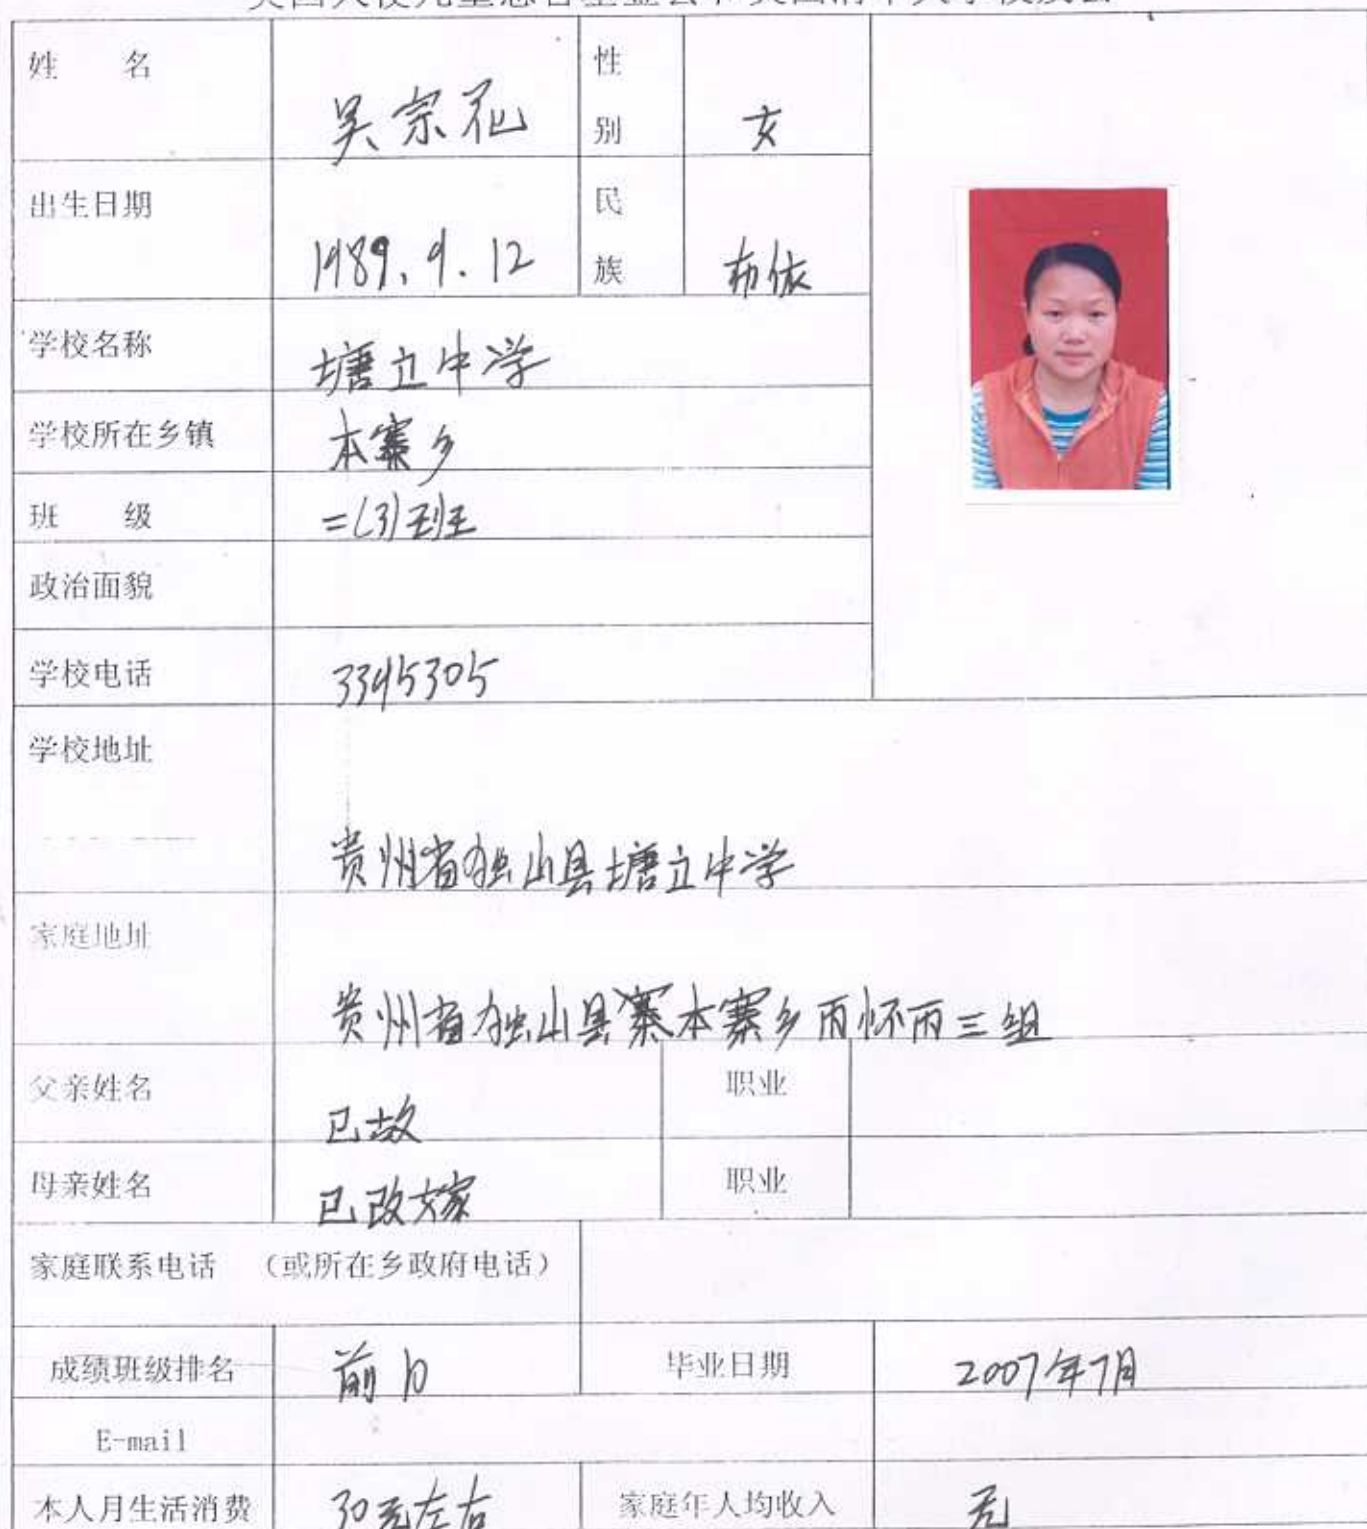 姓 名 吴宗花 性别 女
出生日期 1989.9.12 民族 布依
学校名称 塘立中学
学校所在乡镇 本寨乡
班 级 二(3)班
政治面貌
学校电话 3395305
学校地址 贵州省独山县塘立中学
家庭地址 贵州省独山县寨本寨乡雨怀雨三组
父亲姓名 已故 职业
母亲姓名 已改嫁 职业
家庭联系电话 （或所在乡政府电话）
成绩班级排名 前10 毕业日期 2007年7月
E-mail
本人月生活消费 30元左右 家庭年人均收入 无